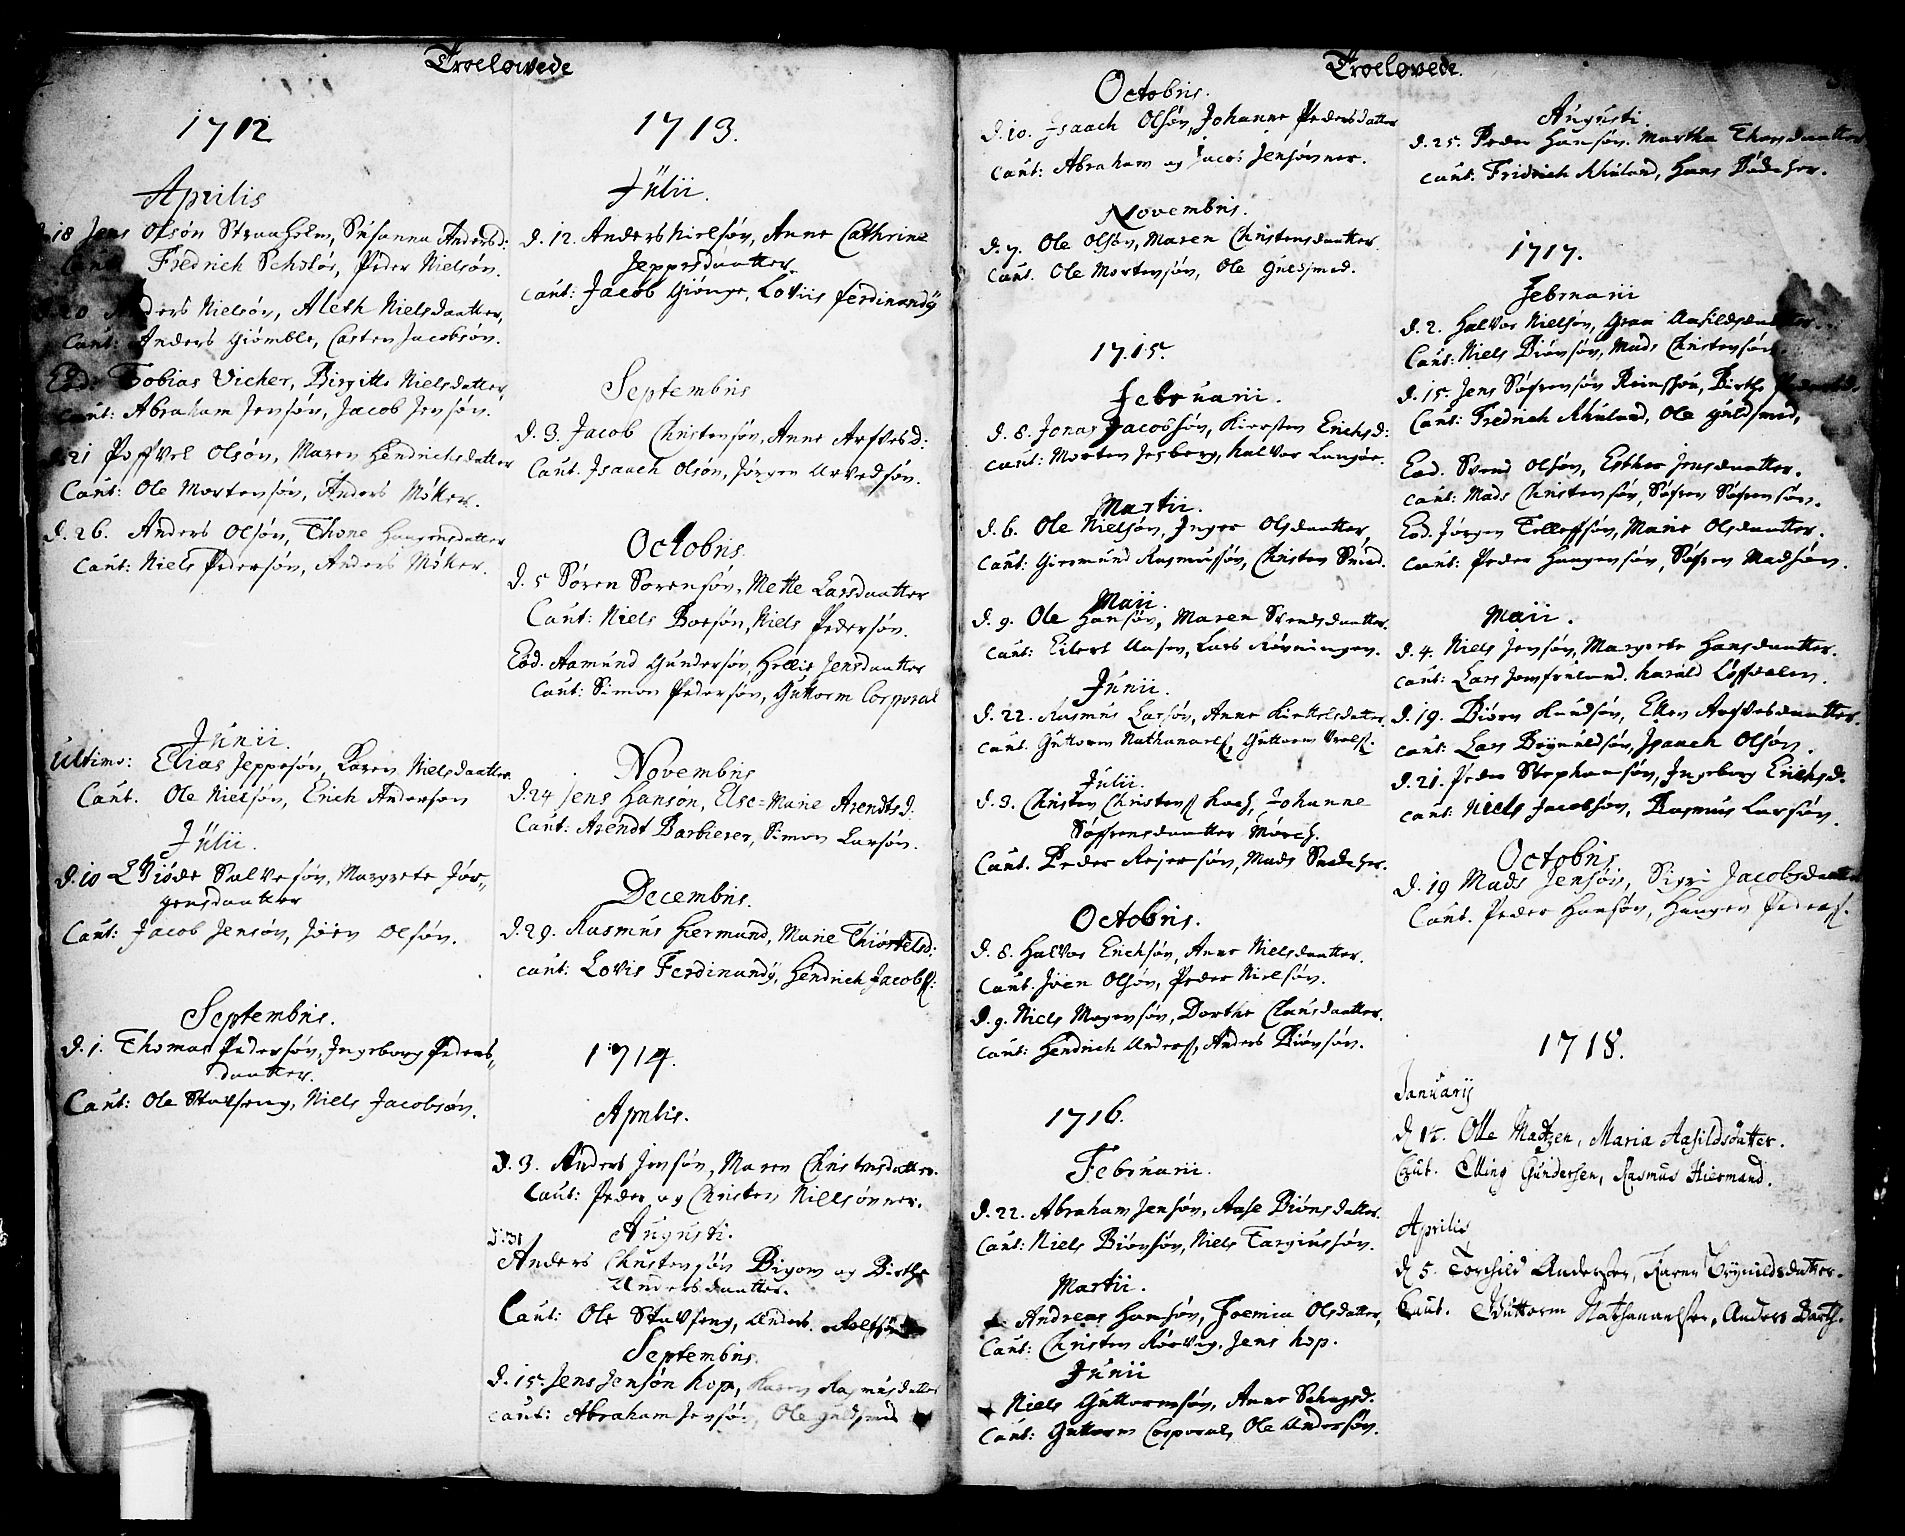 Troeløvede
1712
Aprilis
d. 18 Jens Olsøn Straaholm, Susanna Andersd:
Caut: Fredrich Schsløs, Peder Nielsøn.
d. 20 Anders Nielsøn, Aleth Nielsdaatter,
Caut: Anders Giømble, Casten Jacobsøn.
Eod: Tobias Vicher, Birgitte Nielsdatter,
Caut: Abraham Jensøn, Jacob Jensøn.
d. 21 Poffvel Olsøn, Maren Hendrichsdatter
Caut: Ole Mortensøn, Anders Møker.
d. 26. Anders Olsøn, Thone Haagensdatter
Caut: Niels Pedersøn, Anders Møker.
Junii.
Ultimo: Elias Jeppesøn, Karen Nielsdaatter.
Caut. Ole Nielsøn, Erich Andersøn
Julii.
d. 10 Salvesøn, Margrete Jør„
gensdaatter
Caut: Jacob Jensøn, Jöen Olsøn.
Septembris.
d. 1. Thomas Pedersøn, Ingeborg Peders„
daatter.
Caut: Ole Stavseng, Niels Jacobsøn.
1713.
Julii.
d. 12. Anders Nielsøn, Anne Cathrine
Jeppesdaatter.
Caut: Jacob Giønge, Loviis Ferdinandÿ
Septembris
d. 3. Jacob Christensøn, Anne Arfvesd:
Caut. Isaach Olsøn, Jørgen Arvedsøn.
Octobris.
d. 5 Søren Sørensøn, Mette Larsdaatter
Caut: Niels Boesøn, Niels Pedersøn.
Eod. Aamund Gundersøn, Hellie Jensdaatter
Caut: Simon Pedersøn, Guttorm Corporal
Novembris
d. 24 Jens Hansøn, Else=Marie Arendtsd:
Caut: Arendt Barbierer, Simon Larsøn.
Decembris.
d. 29. Rasmus Hiermand, Marie Thiøstelsd:
Caut: Lovis Ferdinandy, Hendrich Jacobss:
1714.
Aprilis.
d. 3. Anders Jensøn, Maren Christensdatter.
Caut: Peder og Christen Nielsønner.
Augusti.
d. 31
Anders Christensøn Bigom og Birthe
Andersdaatter.
Caut: Ole Stavseng, Anders
Septembris.
d. 15. Jens Jensøn Hop, Karen Rasmusdatter
Caut: Abraham Jensøn, Ole guldsmed
Troeløvede.
Octobris.
d. 10. Isaach Olsøn, Johanne Pedersdatter
Caut: Abraham og Jacob Jensønner.
Novembris.
d. 7. Ole Olsøn, Maren Christensdaatter.
Caut. Ole Mortensøn, Ole Guldsmed.
1715.
Februarii.
d. 8. Jonas Jacobsøn, Kiersten Erichsd:
Caut: Morten Jesberg, Halvor Langøe.
Martii.
d. 6. Ole Nielsøn, Inger Olsdaatter,
Caut: Giermund Rasmussøn, Christen Smed.
Maii.
d. 9. Ole Hansøn, Maren Svendsdaatter.
Caut: Eilert Aasen, Lars Rønningen.
Junii.
d. 22. Rasmus Larsøn, Anne Kiettelsdatter.
Caut. Guttorm Nathanaels, Guttorm
Julii.
d. 3. Christen Christens Koch, Johanne
Søffrensdaatter Mørch.
Caut. Peder Rejersøn, Mads Snedcher.
Octobris.
d. 8. Halvor Erichsøn, Anne Nielsdaatter.
Caut. Jöen Olsøn, Peder Nielsøn.
d. 9. Niels Mogensøn, Dorthe Clausdaatter.
Caut: Hendrich Anders, Anders Biønsøn.
1716.
Februarii.
d. 22. Abraham Jensøn, Aase Biønsdatter.
Caut: Niels Biønsøn, Niels Targiussøn.
Martii.
Andreas Hansøn, Joemia Olsdatter,
Caut: Christen Rørvig, Jens Hop.
Junii
Niels Guttormsøn, Anne
Caut: Guttorm Corporal, Ole Andersøn.
Augusti.
d. 25. Peder Hansøn. Martha Thorsdaatter
Caut. Fridrich Rhuland, Hans Bødcher.
1717.
Februarii
d. 2. Halvor Nielsøn, Groe Aasildsdaatter.
Caut: Niels Biønsøn, Mads Christensøn.
d. 15. Jens Søfrensøn Birthe
Caut: Fredrich Rhuland, Ole guldsmed,
Eod. Svend Olsøn, Esther Jensdaatter.
Caut: Mads Christensøn, Søfren Søfrensøn.
Eod. Jørgen Telleffsøn, Marie Olsdaatter.
Caut: Peder Haagensøn, Søfren Madsøn.
Maii.
d. 4. Niels Jensøn, Margrete Hansdaatter.
Caut: Lars Jomfruland, Harald Løffdalen.
d. 19. Biørn Knudsøn, Ellen Arfvesdaatter.
Caut: Lars Brÿnildsøn, Isaach Olsøn.
d. 21. Peder Stephansøn, Ingeborg Erichsd:
Caut: Niels Jacobsøn, Rasmus Larsøn.
Octobris
d. 19 Mads Jensøn, Sigri Jacobsdaatter
Caut. Peder Hansøn, Haagen Peders.
1718.
Januarij
d 12. Olle Madtzen, Maria Aasildsdatter.
Caut. Elling Gundersen, Rasmus Hiermand.
Aprilis
d 5. Torchild Andersen, Karen Brynildsdatter.
Caut. Guttorm Nathanaelsen, Anders Barth.